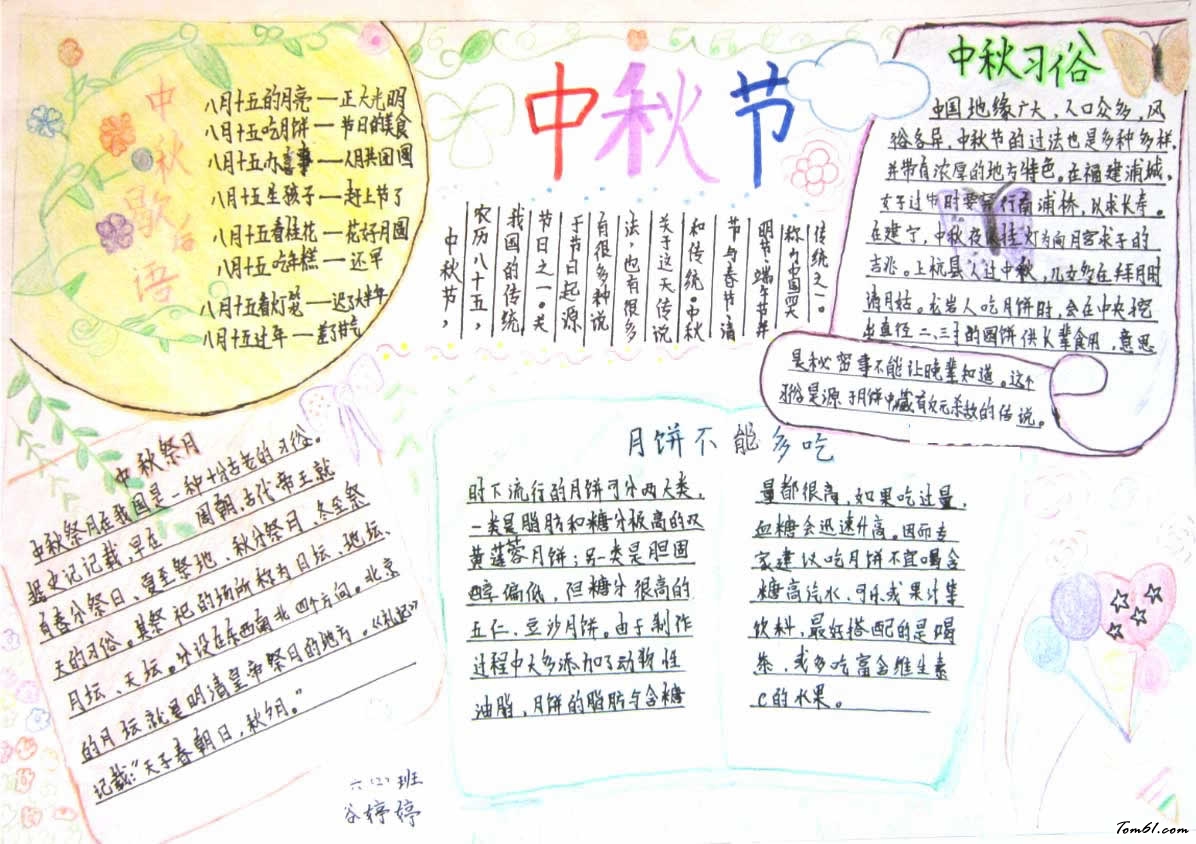 中秋节
中秋歇后语
八月十五的月亮—正大光明
八月十五吃月饼—节日的美食
八月十五办喜事—人月共团圆
八月十五生孩子—赶上节了
八月十五看桂花—花好月圆
八月十五吃年糕—还早
八月十五看灯笼—迟了大半年
八月十五过年—差了时节
中秋节，
农历八十五，
我国的传统
节日之一。关
于节日起源
有很多种说
法，也有很多
关于这天传说
和传统。中秋
节与春节清
明节、端午节并
称为中国四大
传统之一。
中秋习俗
中国地缘广大，人口众多，风
俗各异，中秋节的过法也是多种多样，
并带有浓厚的地方特色。在福建浦城，
女子过中时要穿行南浦桥，以求长寿。
在建宁，中秋夜以挂灯为向月宫求子的
吉兆。上杭县人过中秋，儿女多在拜月时
请月姑。龙岩人吃月饼时，会在中央挖
出直径二、三寸的圆饼供长辈食用，意思
是秘密事不能让晚辈知道。这个
习俗是源于月饼中藏有反元杀敌的传说。
中秋祭月
中秋祭月在我国是一种十分古老的习俗。
据史记记载，早在 周朝，古代帝王就
有春分祭日、夏至祭地、秋分祭月、冬至祭
天的习俗。其祭祀的场所称为日坛、地坛、
月坛、天坛。分设在东西南北四个方向。北京
的月坛就是明清皇帝祭月的地方。《礼记》
记载：“天子春朝日，秋夕月。”
月饼不能多吃
时下流行的月饼可分两大类，
一类是脂肪和糖分极高的双
黄莲蓉月饼；另一类是胆固
醇偏低，但糖分很高的
五仁、豆沙月饼。由于制作
过程中大多添加了动物性
油脂，月饼的脂肪与含糖
量都很高，如果吃过量，
血糖会迅速升高。因而专
家建议吃月饼不宜喝含
糖高汽水、可乐或果汁等
饮料，最好搭配的是喝
茶，或多吃富含维生素
C的水果。
六(2)班
谷婷婷
Tom61.com